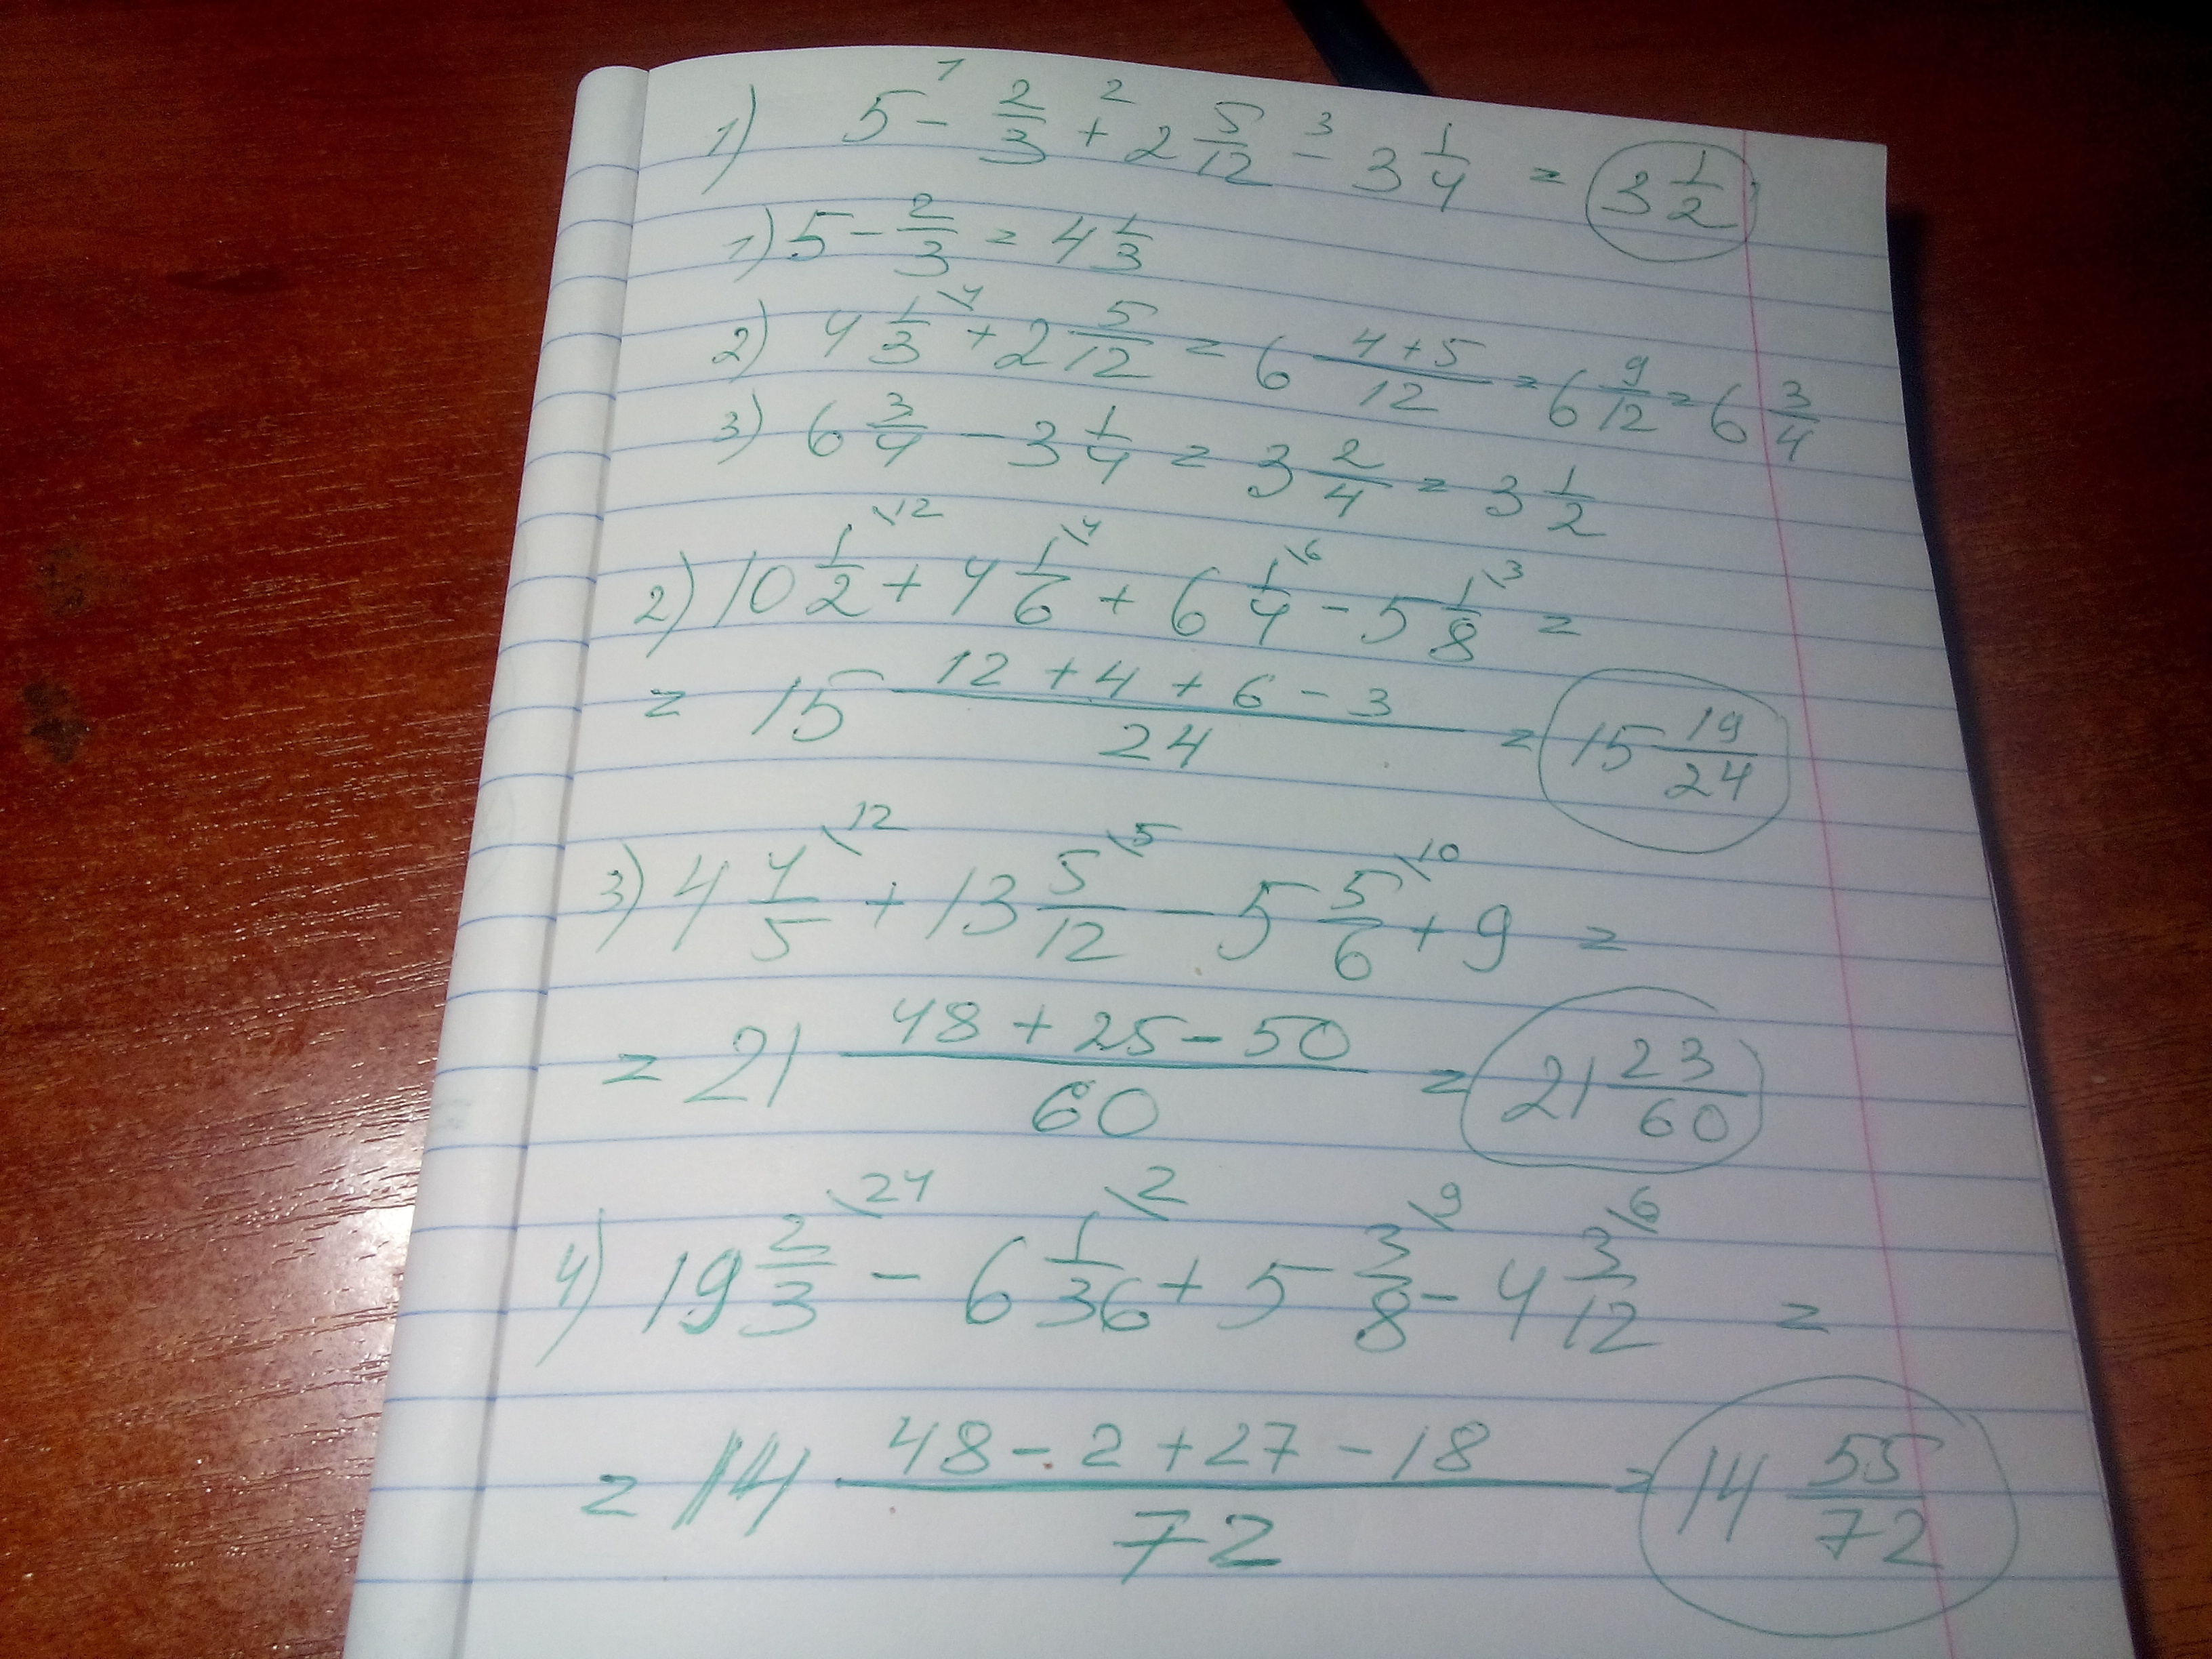 1) 5 -¹ 2/3 +² 2 5/12 -³ 3 1/4 = 3 1/2
1) 5 - 2/3 = 4 1/3
2) 4 1/3 \4 + 2 5/12 = 6 4+5/12 = 6 9/12 = 6 3/4
3) 6 3/4 - 3 1/4 = 3 2/4 = 3 1/2
2) 10 1/2 \12 + 4 1/6 \4 + 6 1/4 \6 - 5 1/8 \3 =
= 15 12 + 4 + 6 - 3/24 = 15 19/24
3) 4 4/5 \12 + 13 5/12 \5 - 5 5/6 \10 + 9 =
= 21 48 + 25 - 50/60 = 21 23/60
4) 19 2/3 \24 - 6 1/36 \2 + 5 3/8 \9 - 4 3/12 \6 =
= 14 48 - 2 + 27 - 18/72 = 14 55/72